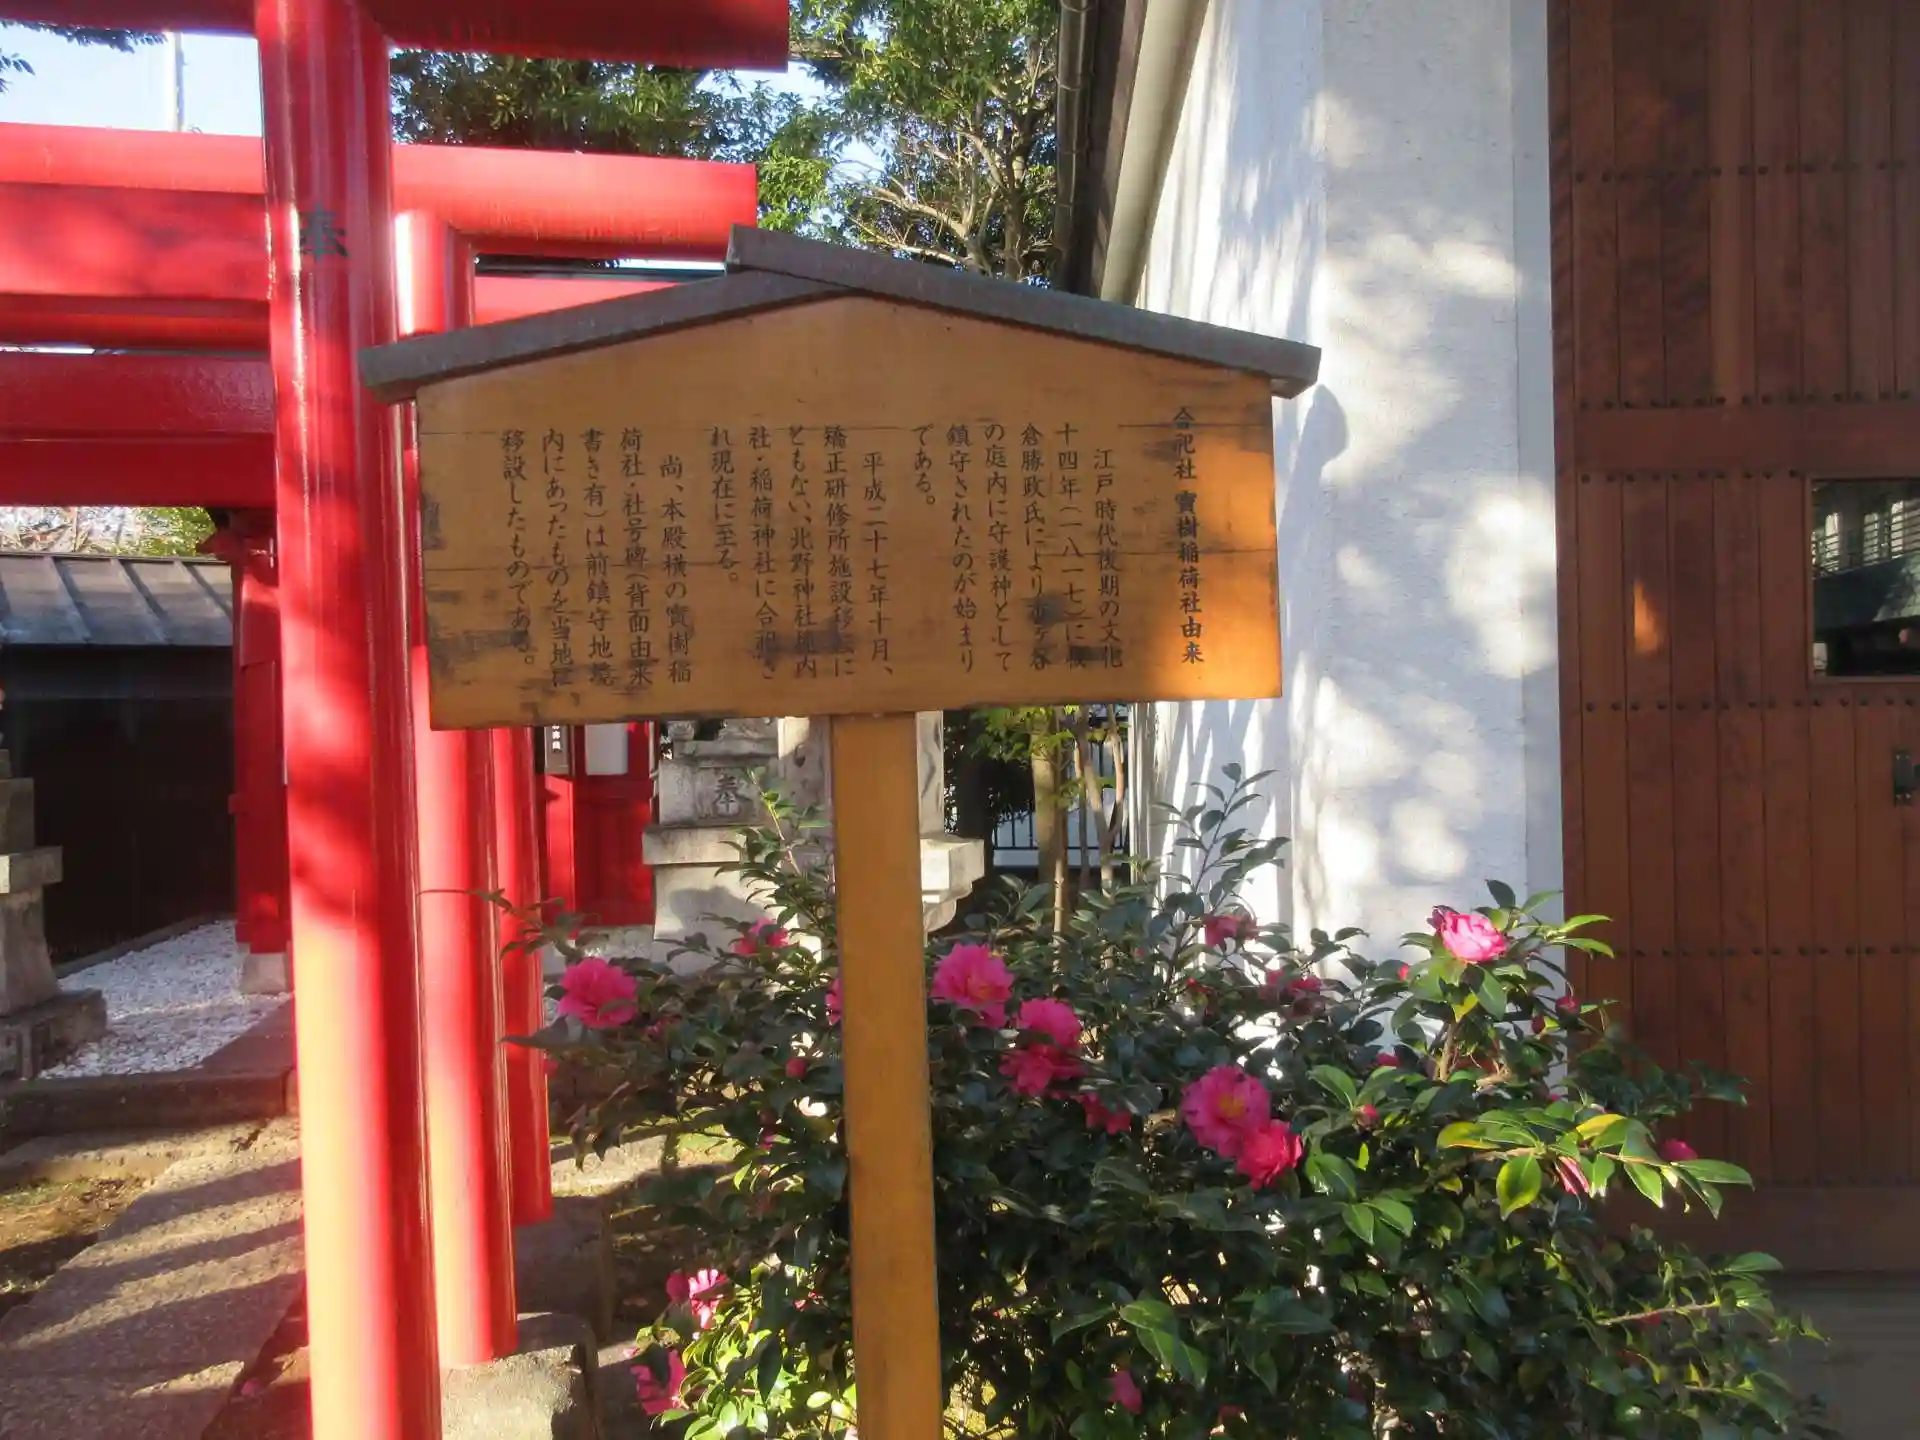 合祀社 寶樹稲荷社由来
江戸時代後期の文化
十四年(一八一七)に
倉勝政氏により市ヶ谷
の庭内に守護神として
鎮守されたのが始まり
である。
平成二十七年十月、
矯正研修所施設移転に
ともない、北野神社境内
社・稲荷神社に合祀さ
れ現在に至る。
尚、本殿横の寳樹稲
荷社・社号碑(背面由来
書き有)は前鎮守地境
内にあったものを当地に、
移設したものである。
奉
奉